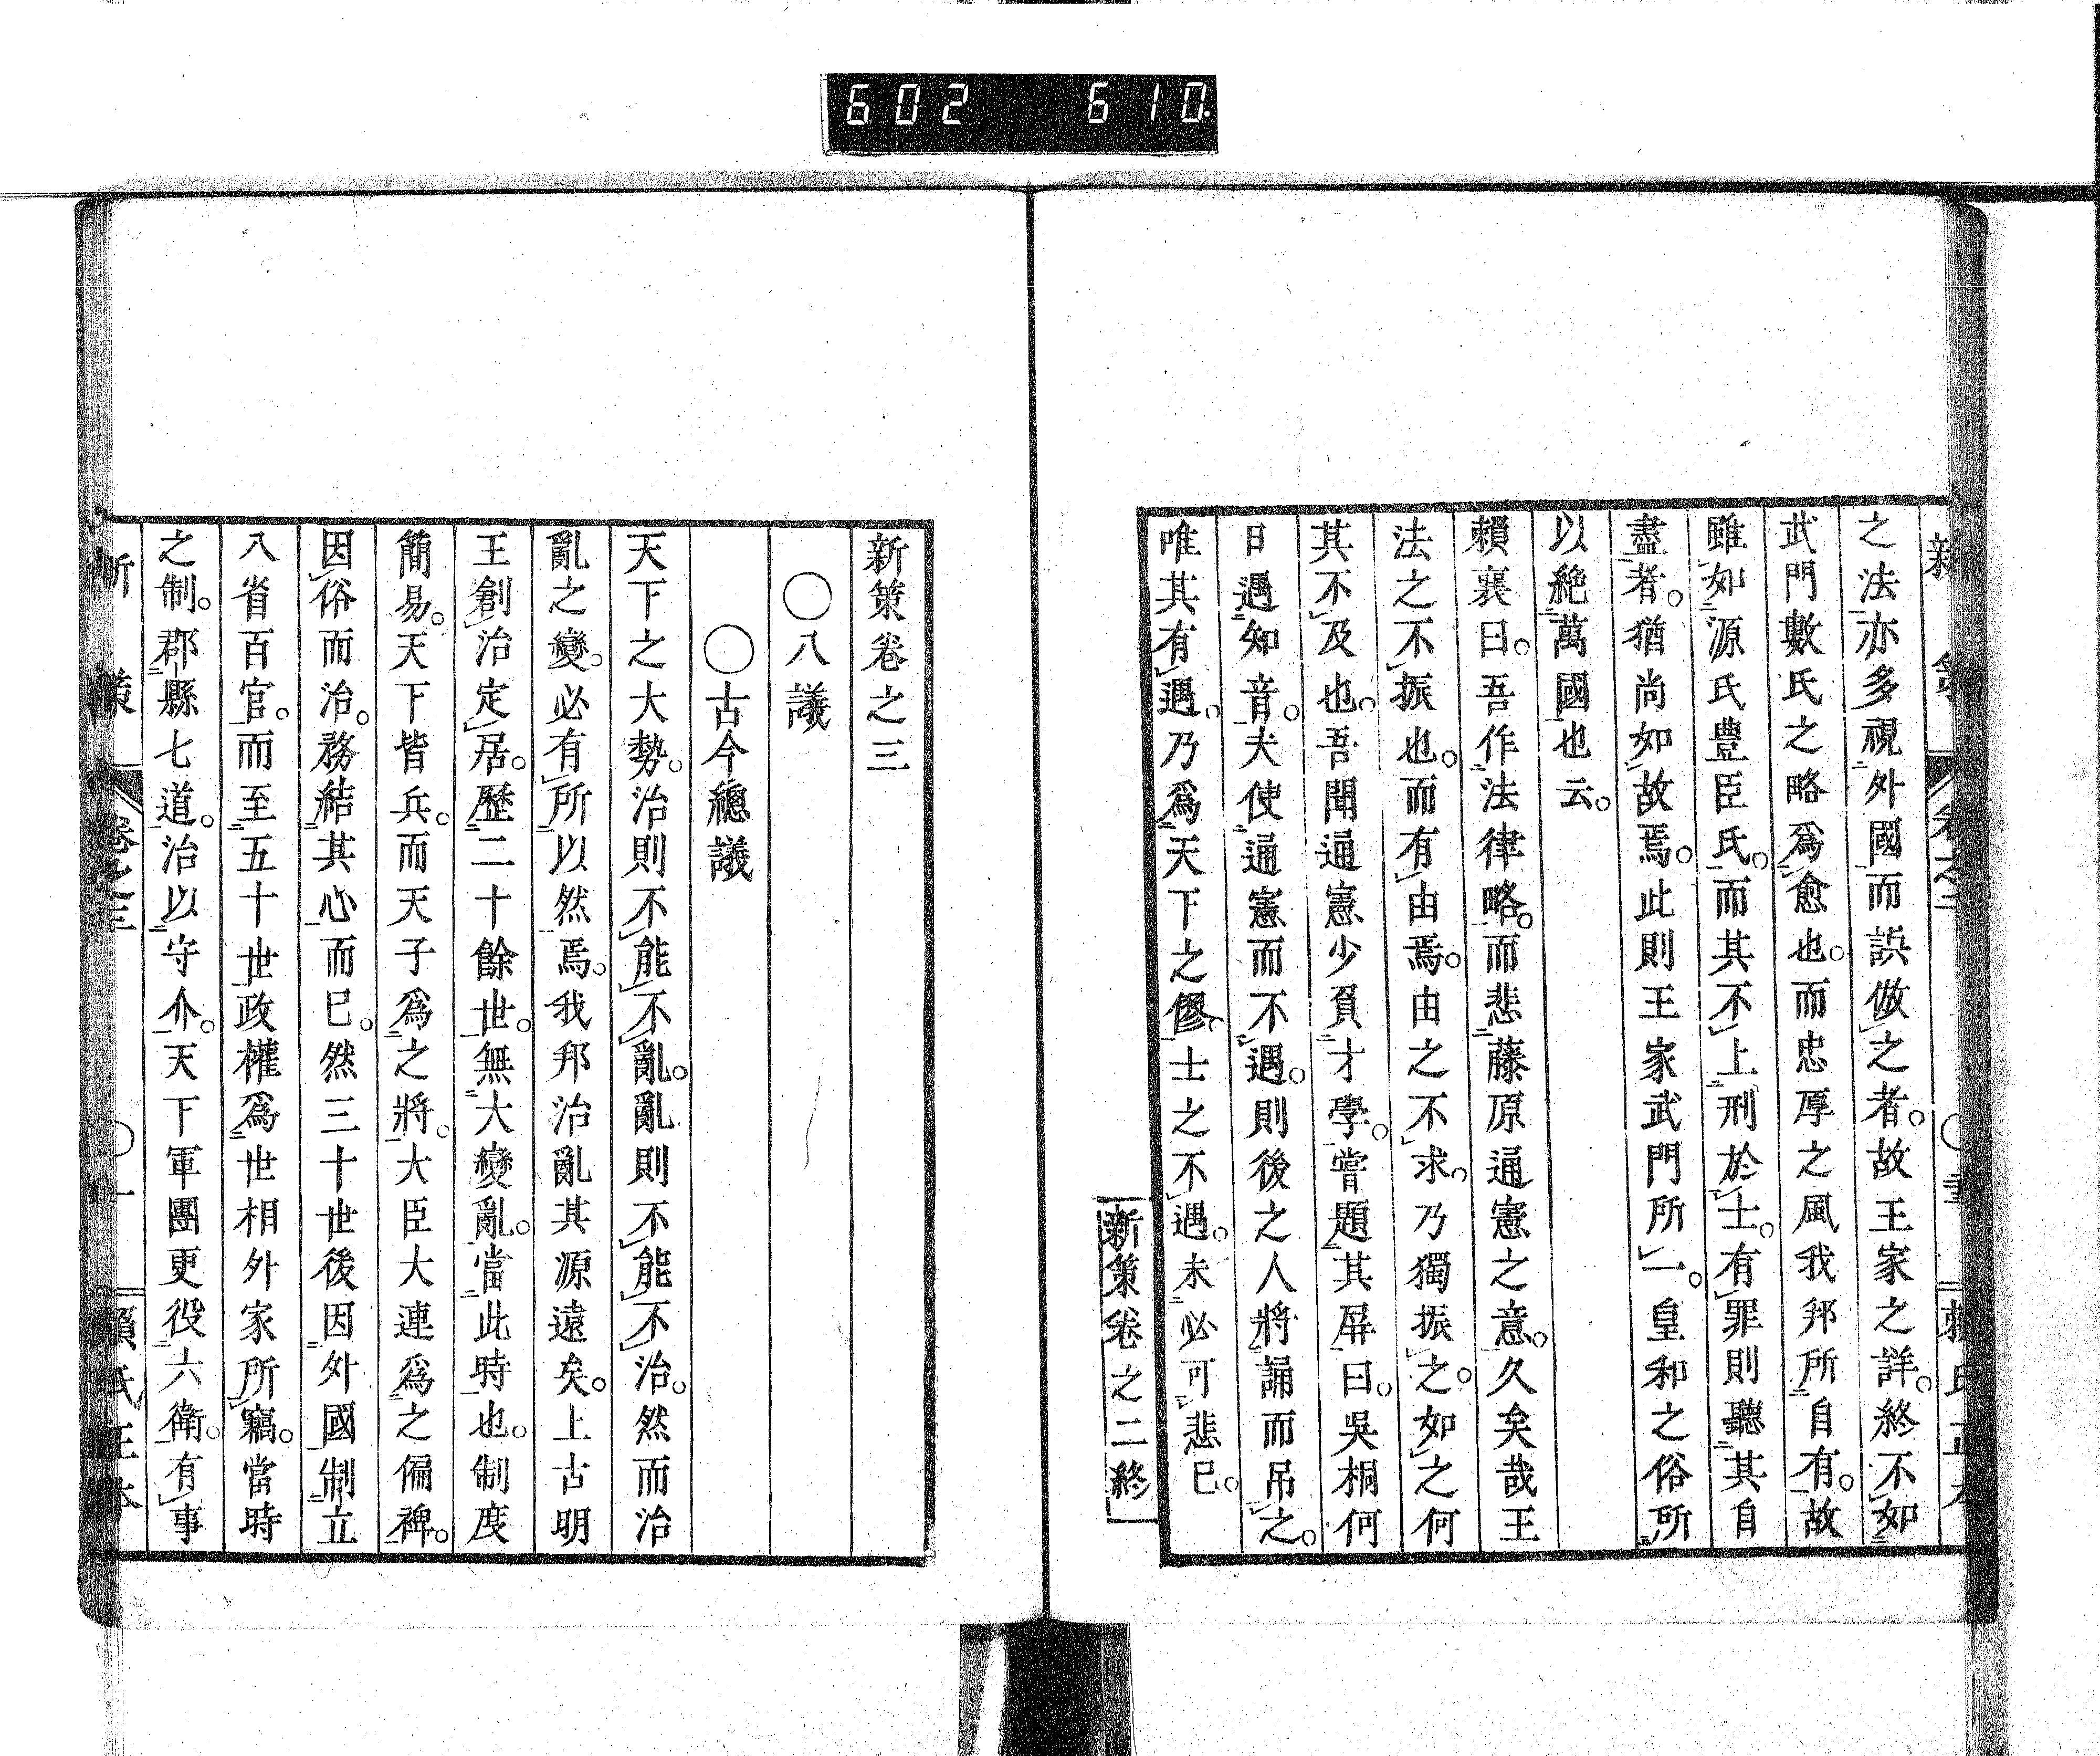 602 610
之法亦多視外國而誤倣之者。故王家之詳。終不如
武門數氏之略爲愈也。而忠厚之風我邦所自有。故
雖如源氏豊臣氏。而其不上刑於士。有罪則聽其自
盡者。猶尚如故焉。此則王家武門所一。皇和之俗所
以絶萬國也云。
賴襄曰。吾作法律略。而悲藤原通憲之意。久矣哉王
法之不振也。而有由焉。由之不求。乃獨振之。如之何
其不及也。吾聞通憲少負才學。嘗題其屏曰。吳桐何
日遇知音。夫使通憲而不遇。則後之人將誦而吊之。
唯其有遇。乃爲天下之僇。士之不遇。未必可悲已。
新策卷之二終
新策卷之三
〇八議
〇古今總議
天下之大勢。治則不能不亂。亂則不能不治。然而治
亂之變。必有所以然焉。我邦治亂其源遠矣。上古明
王創治定居。歷二十餘世。無大變亂。當此時也。制度
簡易。天下皆兵。而天子爲之將。大臣大連爲之偏裨。
因俗而治。務結其心而已。然三十世後因外國制立
八省百官。而至五十世政權爲世相外家所竊。當時
之制。郡縣七道。治以守介。天下軍團更役六衛。有事